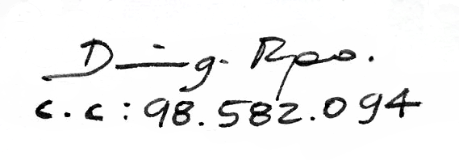 Diego Rpo.
c.c: 98.582.094